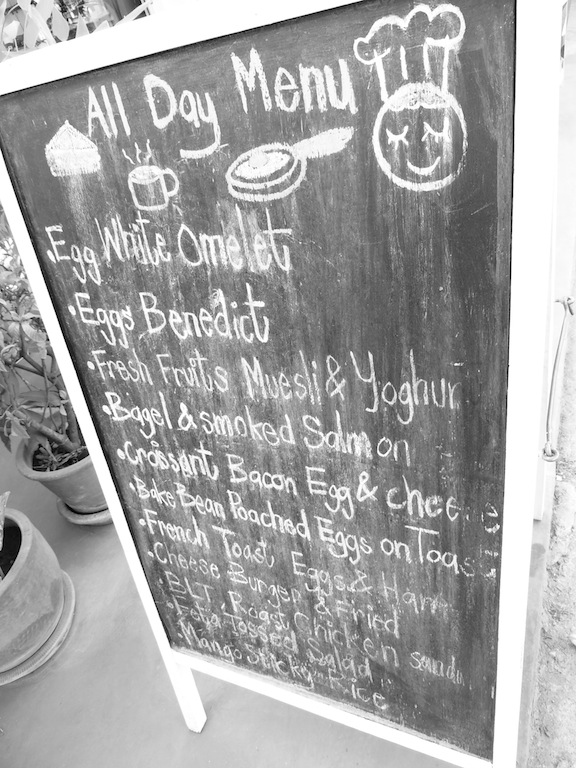 All Day Menu
• Egg White Omelet
• Eggs Benedict
• Fresh Fruits Muesli & Yoghur
• Bagel & smoked Salmon
• Croissant Bacon Egg & chee
• Bake Bean Poached Eggs on Toas
• French Toast Eggs & Ham
• Cheese Burger & Fried
• BLT, Roast chicken
• Feta Tossed Salad
Mango Sticky Rice